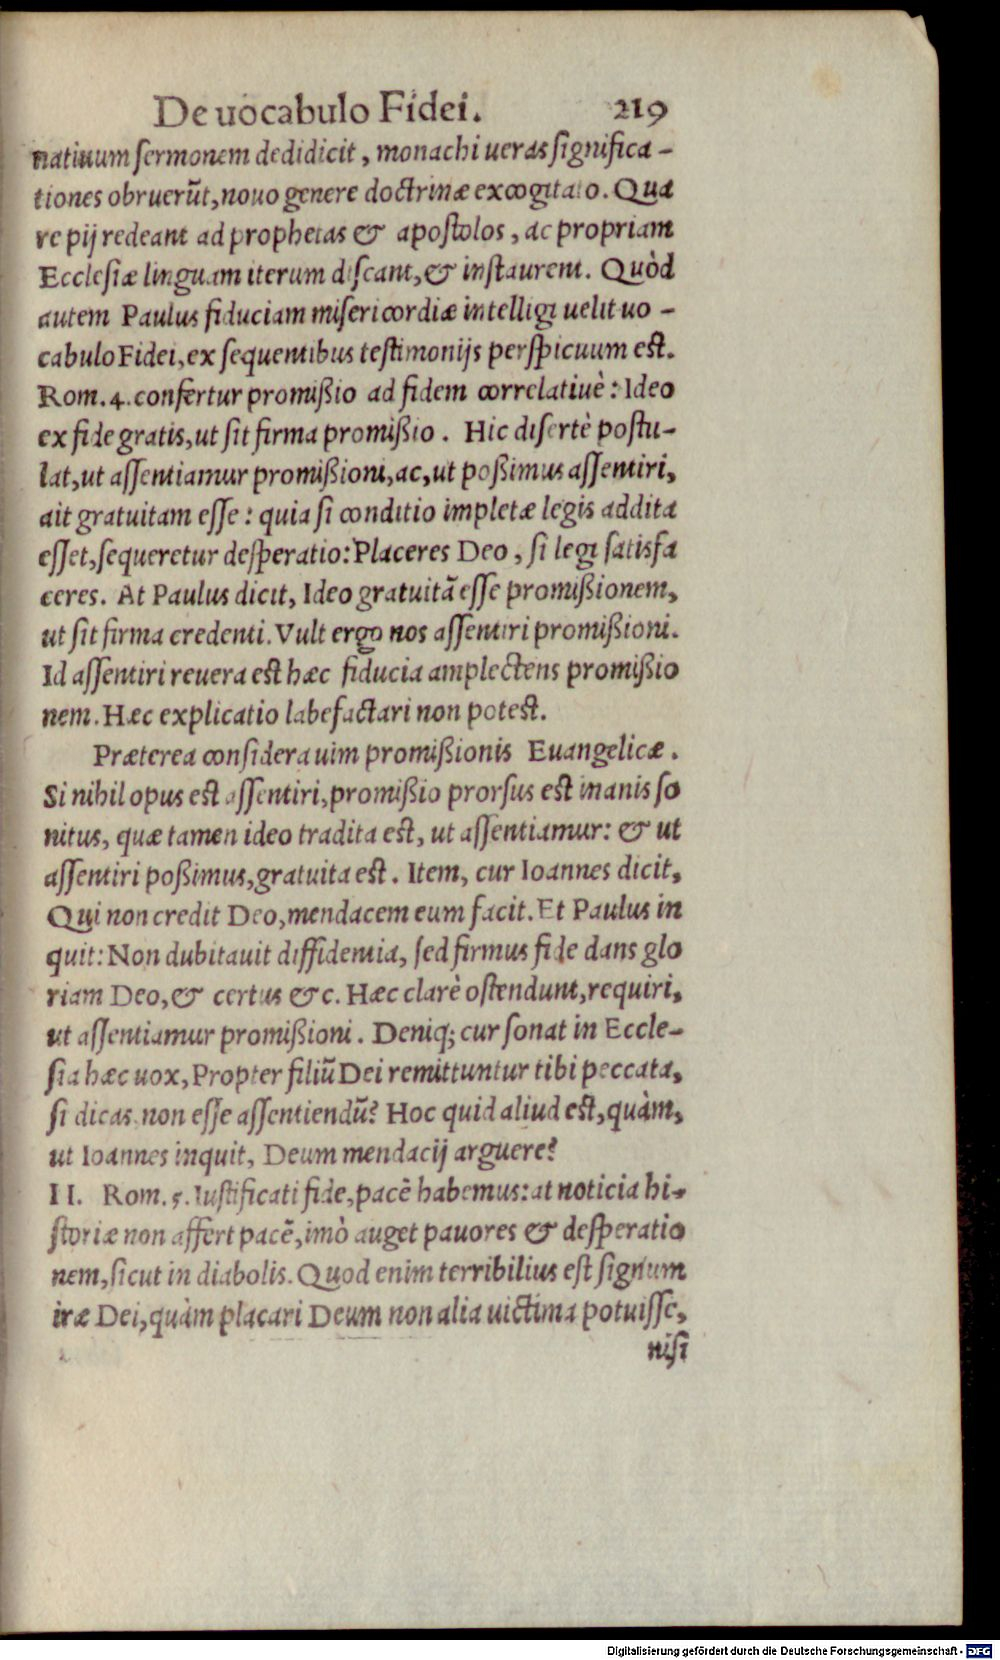 De uocabulo Fidei. 219
natiuum ſermonem dedidicit, monachi ueras ſignifica-
tiones obruerūt, nouo genere doctrinæ excogitato. Qua
re pij redeant ad prophetas & apoſtolos, ac propriam
Eccleſiæ linguam iterum diſcant, & inſtaurent. Quòd
autem Paulus fiduciam miſericordiæ intelligi uelit uo-
cabulo Fidei, ex ſequentibus teſtimonijs perſpicuum eſt.
Rom. 4. confertur promißio ad fidem correlatiuè: Ideo
ex fide gratis, ut ſit firma promißio. Hic diſertè poſtu-
lat, ut aſſentiamur promißioni, ac, ut poßimus aſſentiri,
ait gratuitam eſſe: quia ſi conditio impletæ legis addita
eſſet, ſequeretur deſperatio: Placeres Deo, ſi legi ſatisfa
ceres. At Paulus dicit, Ideo gratuitā eſſe promißionem,
ut ſit firma credenti. Vult ergo nos aſſentiri promißioni.
Id aſſentiri reuera eſt hæc fiducia amplectens promißio
nem. Hæc explicatio labefactari non poteſt.
Præterea conſidera uim promißionis Euangelicæ.
Si nihil opus eſt aſſentiri, promißio prorſus eſt inanis ſo
nitus, quæ tamen ideo tradita eſt, ut aſſentiamur: & ut
aſſentiri poßimus, gratuita eſt. Item, cur Ioannes dicit,
Qui non credit Deo, mendacem eum facit. Et Paulus in
quit: Non dubitauit diffidentia, ſed firmus fide dans glo
riam Deo, & certus &c. Hæc clarè oſtendunt, requiri,
ut aſſentiamur promißioni. Deniq; cur ſonat in Eccle-
ſia hæc uox, Propter filiū Dei remittuntur tibi peccata,
ſi dicas non eſſe aſſentiendū? Hoc quid aliud eſt, quàm,
ut Ioannes inquit, Deum mendacij arguere?
II. Rom. 5. Iuſtificati fide, pacē habemus: at noticia hi-
ſtoriæ non affert pacē, imò auget pauores & deſperatio
nem, ſicut in diabolis. Quod enim terribilius eſt ſignum
iræ Dei, quàm placari Deum non alia uictima potuiſſe,
niſi
Digitalisierung gefördert durch die Deutsche Forschungsgemeinschaft - DFG